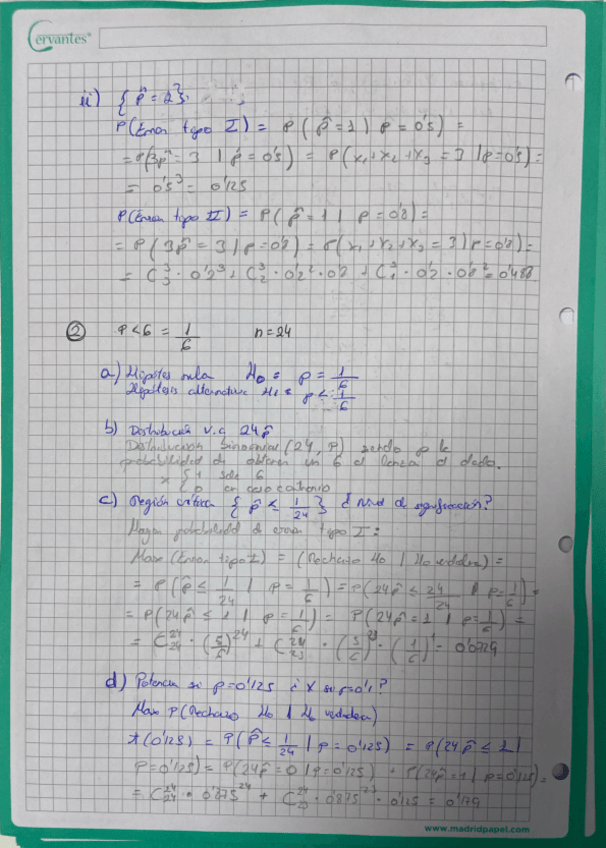 Cervantes
ii) { p̂ = 2 }
P(Error tipo I) = P( p̂ = 1 | p = 0'5) =
= P(3p̂ = 3 | p = 0'5) = P(x₁+x₂+x₃ = 3 | p=0'5) =
= 0'5³ = 0'125
P(Error tipo II) = P( p̂ = 1 | p = 0'8) =
= P( 3p̂ = 3 | p = 0'8) = P(x₁+x₂+x₃ = 3 | p=0'8) =
= C³₃ · 0'2³ + C³₂ · 0'2² · 0'8 + C³₁ · 0'2 · 0'8² = 0'488
② P<6 = 1/6 n=24
a) Hipótesis nula H₀ = p = 1/6
Hipótesis alternativa H₁ = p < 1/6
b) Distribución v.a 24p̂
Distribución binomial (24, P) siendo p la
probabilidad de obtener un 6 al lanzar el dado.
x { 1 sale 6
0 en caso contrario
c) Región crítica { p̂ ≤ 1/24 } ¿Nivel de significación?
Mayor probabilidad de error tipo I:
Max (Error tipo I) = (Rechazo H₀ | H₀ verdadera) =
= P( p̂ ≤ 1/24 | p = 1/6 ) = P(24p̂ ≤ 24/24 | p = 1/6) =
= P(24p̂ ≤ 1 | p = 1/6) = P(24p̂ = 1 | p = 1/6) =
= C²⁴₂₄ · (5/6)²⁴ + C²⁴₂₃ · (5/6)²³ · (1/6)¹ = 0'0729
d) Potencia si p=0'125 ¿Y si p=0'1?
Max P(Rechazo H₀ | H₀ verdadera)
π(0'125) = P(p̂ ≤ 1/24 | p = 0'125) = P(24p̂ ≤ 1 |
p=0'125) = P(24p̂ = 0 | p=0'125) + P(24p̂ = 1 | p=0'125) =
= C²⁴₂₄ · 0'875²⁴ + C²⁴₂₃ · 0'875²³ · 0'125 = 0'179
www.madridpapel.com